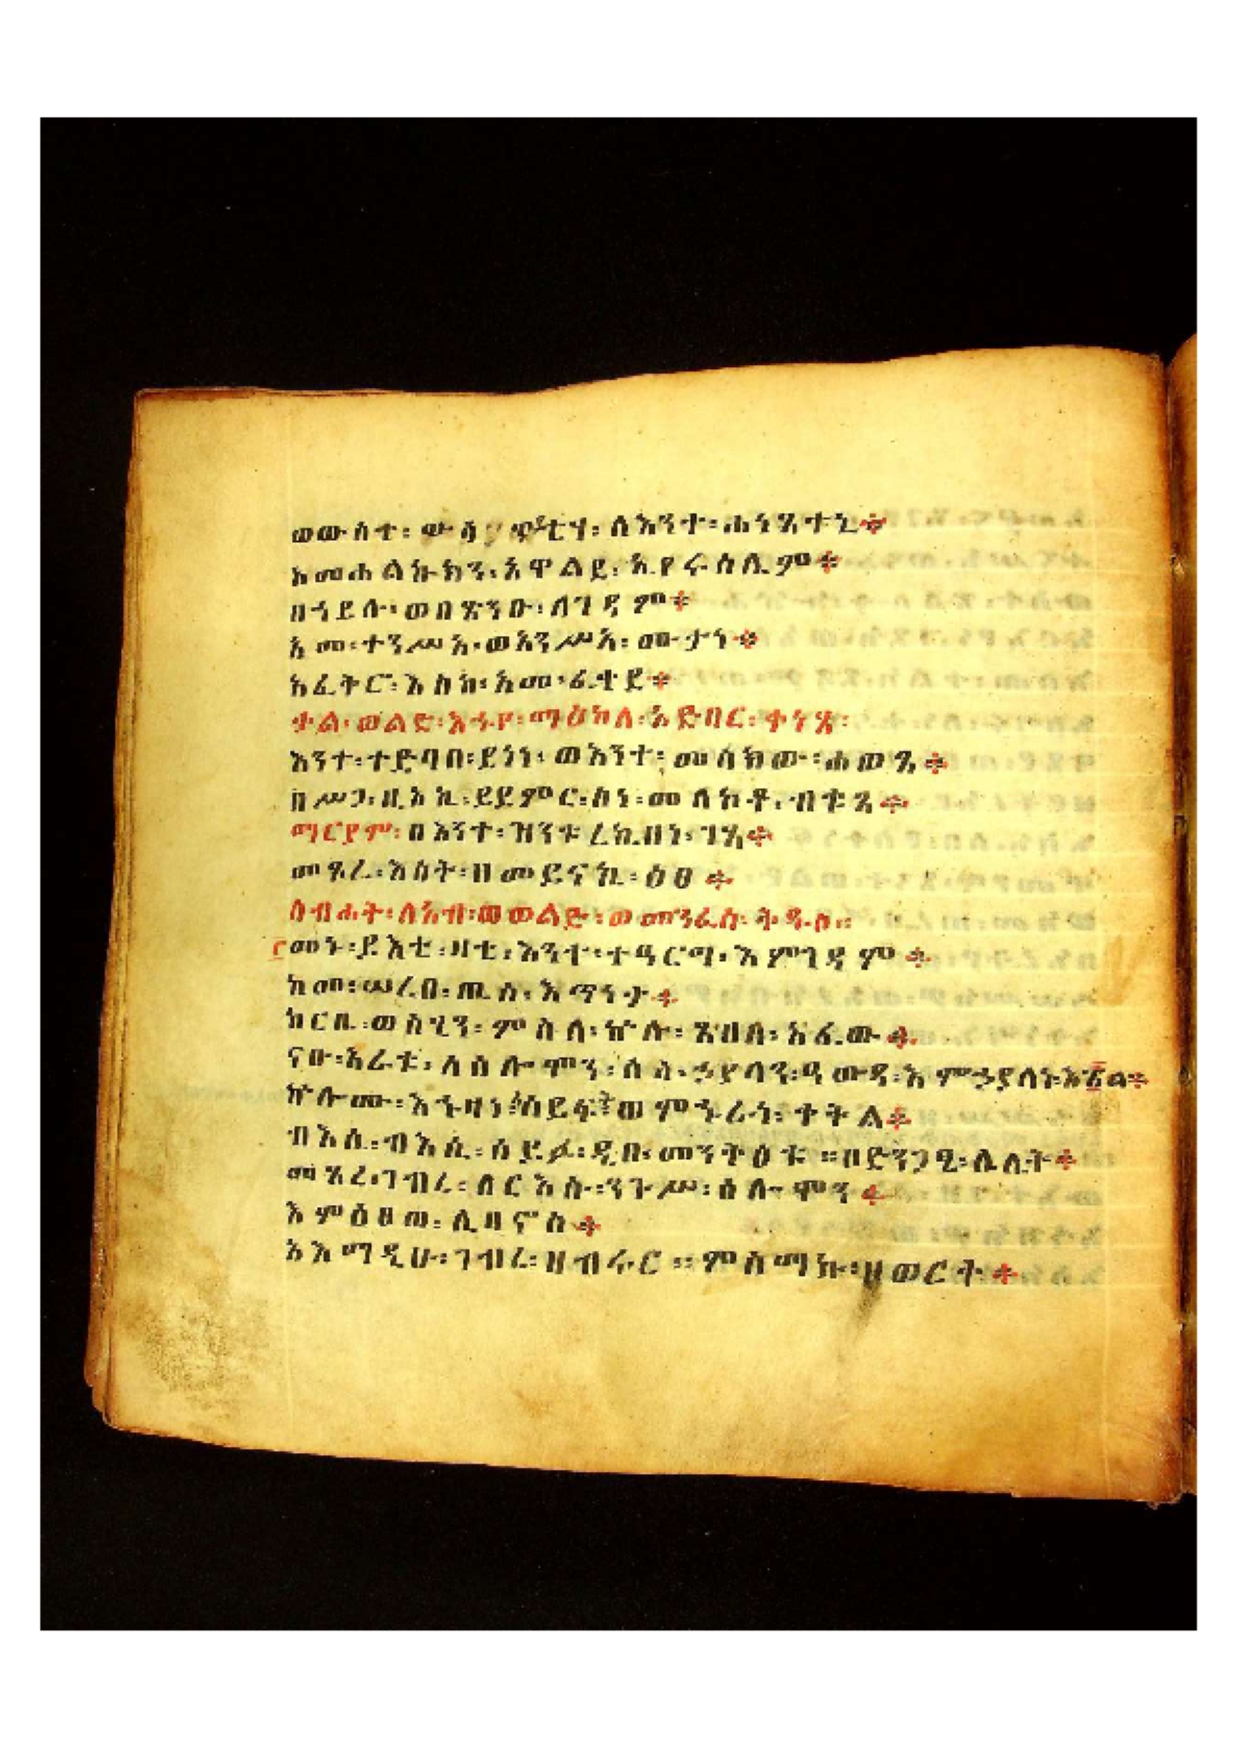 ወውስተ፡ ውሳጥቲሃ፡ ለእንተ፡ ሐነጸተኒ፨
አመሐልኩክን፡ አዋልደ፡ ኢየሩሳሌም፨
በኀይሉ፡ ወበጽንዑ፡ ለገዳም፨
አመ፡ ተንሥአ፡ ወአንሥአ፡ ሙታነ፨
አፈትር፡ እስከ፡ አመ፡ ፈቲደ፨
ቃል፡ ወልድ፡ እኁየ፡ ማዕከለ፡ አድበር፡ ቀነጸ፡
እንተ፡ ተድባበ፡ ደነነ፡ ወእንተ፡ መስኮት፡ ሐወጸ፨
በሥጋ፡ ዚአኪ፡ ይደምር፡ ስነ፡ መለኮቶ፡ ብቱጸ፨
ማርያም፡ በእንተ፡ ዝንቱ፡ ረኪበነ፡ ገጸ፨
መጻረ፡ እሰት፡ ዘመይናኪ፡ ዕፀ፨
ስብሐት፡ ለአብ፡ ወወልድ፡ ወመንፈስ፡ ቅዱስ።
መኑ፡ ይእቲ፡ ዛቲ፡ እንተ፡ ተዓርግ፡ እምገዳም፨
ከመ፡ ሠረበ፡ ጢስ፡ እማንታ፨
ከርቤ፡ ወስሂን፡ ምስለ፡ ኵሉ፡ ጼዘበ፡ አፈው፨
ናሁ፡ አራቱ፡ ለሰሎሞን፡ ስሳ፡ ኃያላን፡ ዓውዳ፡ እምኃያላነ፡ እ፳ል፨
ኵሎሙ፡ እኁዛነ፡ ሰይፍ፡ ወምሁራነ፡ ቀትል፨
ብእሲ፡ ብእሲ፡ ሰይፉ፡ ዲበ፡ መንትዕቱ። በድንጋፄ፡ ሌሊት፨
መጾረ፡ ገብረ፡ ለርእሱ፡ ንጉሥ፡ ሰሎሞን፨
እምዕፀወ፡ ሊባኖስ፨
አእማዲሁ፡ ገብረ፡ ዘብሩር። ምስማኩ፡ ዘወርቅ፨